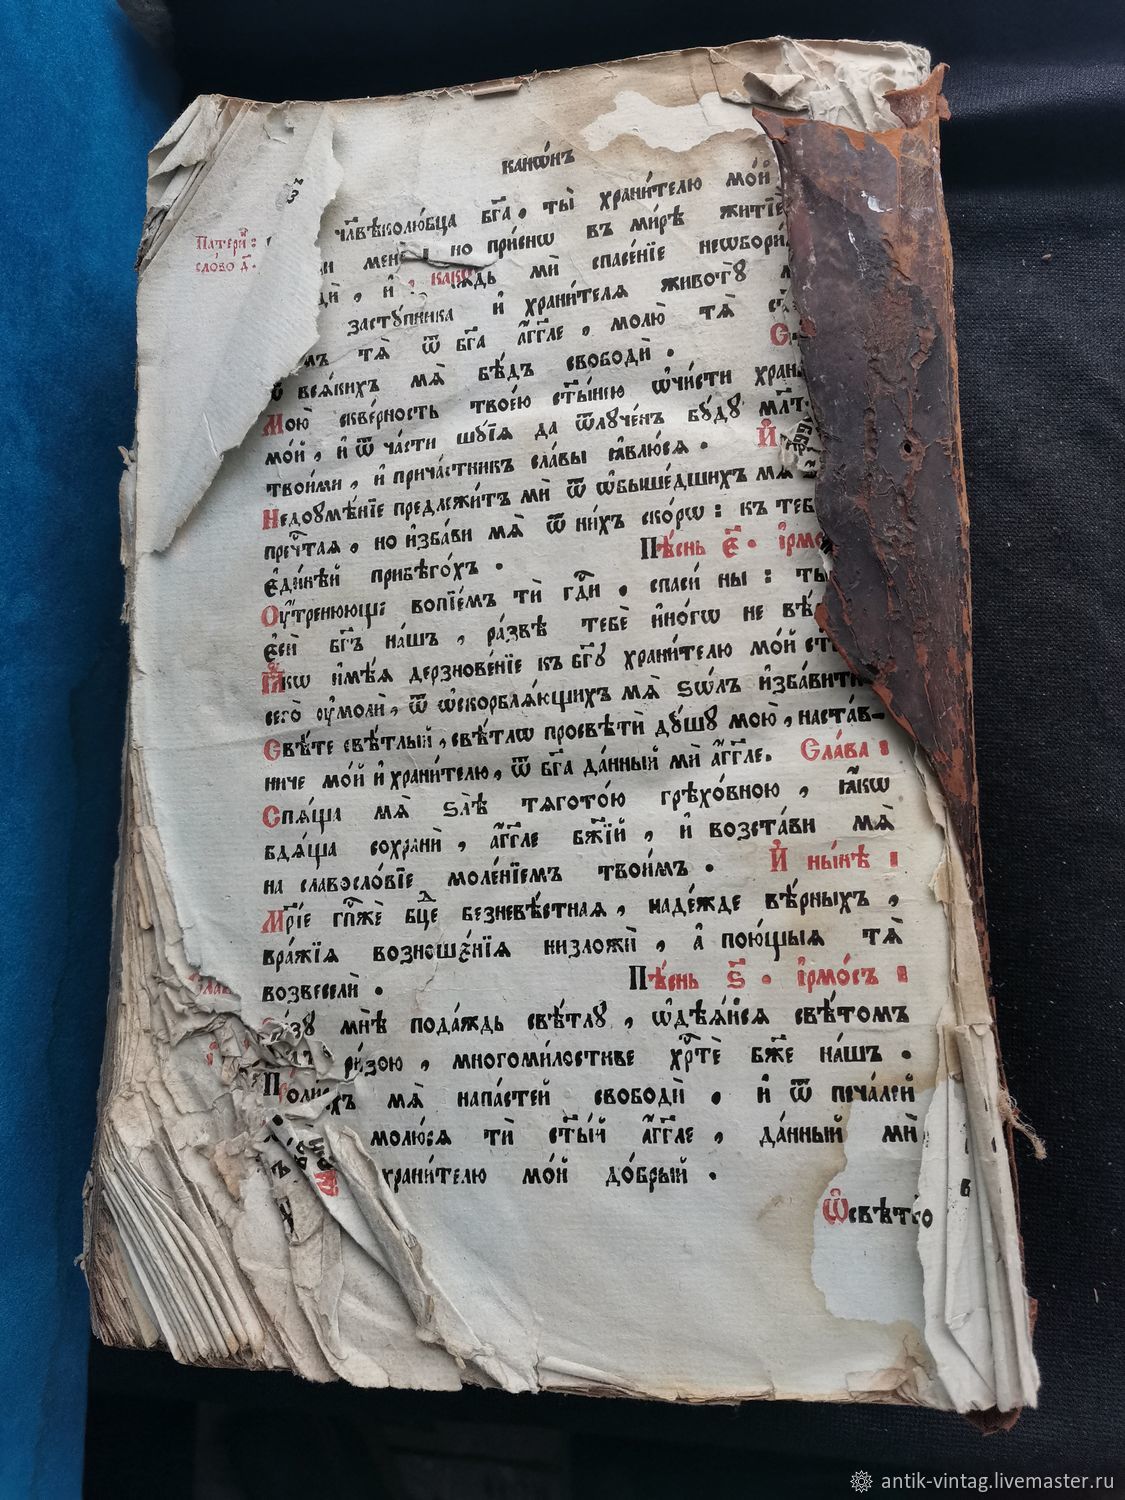 канѡ́нъ
Патери҄ :
сло́во д҃.
чл҃вѣколю́бца бг҃а , ты̀ храни́телю мо́й
мене̑ но при́снѡ въ ми́рѣ житїе
ми̑ спасе́нїе неѡбори
засту́пника и҆ храни́теля живото́у
тѧ̀ ѿ бг҃а а҆́гг҃ле , молю̀ тѧ̀
всѧ́кихъ мѧ̀ бѣ́дъ свободѝ .
Мою̀ скве́рность твое́ю ст҃ы́нею ѡ҆чи́сти храни
мо́й , и҆ ѿ ча́сти шу́їѧ да ѿлуче́нъ бу́ду мл҃т
твои́ми , и҆ прича́стникъ сла́вы ꙗ҆влю́сѧ . И҆
Недоумѣ́нїе предлежи́тъ мѝ ѿ ѡ҆быше́дшихъ мѧ̀
пречⷭ҇таѧ , но и҆зба́ви мѧ̀ ѿ ни́хъ ско́рѡ : къ тебѣ
є҆ди́нѣй прибѣго́хъ . Пѣ́снь є҃ . і҆рмо́
Оу҆́тренююще вопїе́мъ тѝ гдⷭ҇и , спасѝ ны̀ : ты
є҆сѝ бг҃ъ на́шъ , ра́звѣ тебѐ и҆но́гѡ не вѣ́
Ꙗ҆́кѡ и҆мѣ́ѧ дерзнове́нїе къ бг҃у храни́телю мо́й ст҃
сего̀ оу҆молѝ , ѿ ѡ҆скорблѧ́ющихъ мѧ̀ ѕѡ́лъ и҆зба́вити
Свѣ́те свѣ́тлый , свѣ́тлѡ просвѣтѝ ду́шу мою̀ , наста́в-
ниче мо́й и҆ храни́телю , ѿ бг҃а да́нный мѝ а҆́гг҃ле . Сла́ва :
Спѧ́ща мѧ̀ ѕлѣ̀ тѧгото́ю грѣхо́вною , ꙗ҆́кѡ
бдѧ́ща сохранѝ , а҆́гг҃ле бж҃їй , и҆ возста́ви мѧ̀
на славосло́вїе моле́нїемъ твои́мъ . И҆ ны́нѣ :
Мр҃і́е гпⷭ҇жѐ бцⷣе безневѣ́стнаѧ , наде́жде вѣ́рныхъ ,
вра́жїѧ возноше́нїѧ низложѝ , а҆ пою́щыѧ тѧ̀
возвеселѝ . Пѣ́снь ѕ҃ . і҆рмо́съ :
ри́зу мнѣ̀ пода́ждь свѣ́тлу , ѡ҆дѣѧ́йсѧ свѣ́томъ
ри́зою , многоми́лостиве хрⷭ҇тѐ бж҃е на́шъ .
мѧ̀ напа́стей свободѝ . и҆ ѿ печа́лей
молю́сѧ тѝ ст҃ы́й а҆́гг҃ле , да́нный мѝ
храни́телю мо́й до́брый .
Ѡ҆свѣти́
antik-vintag.livemaster.ru